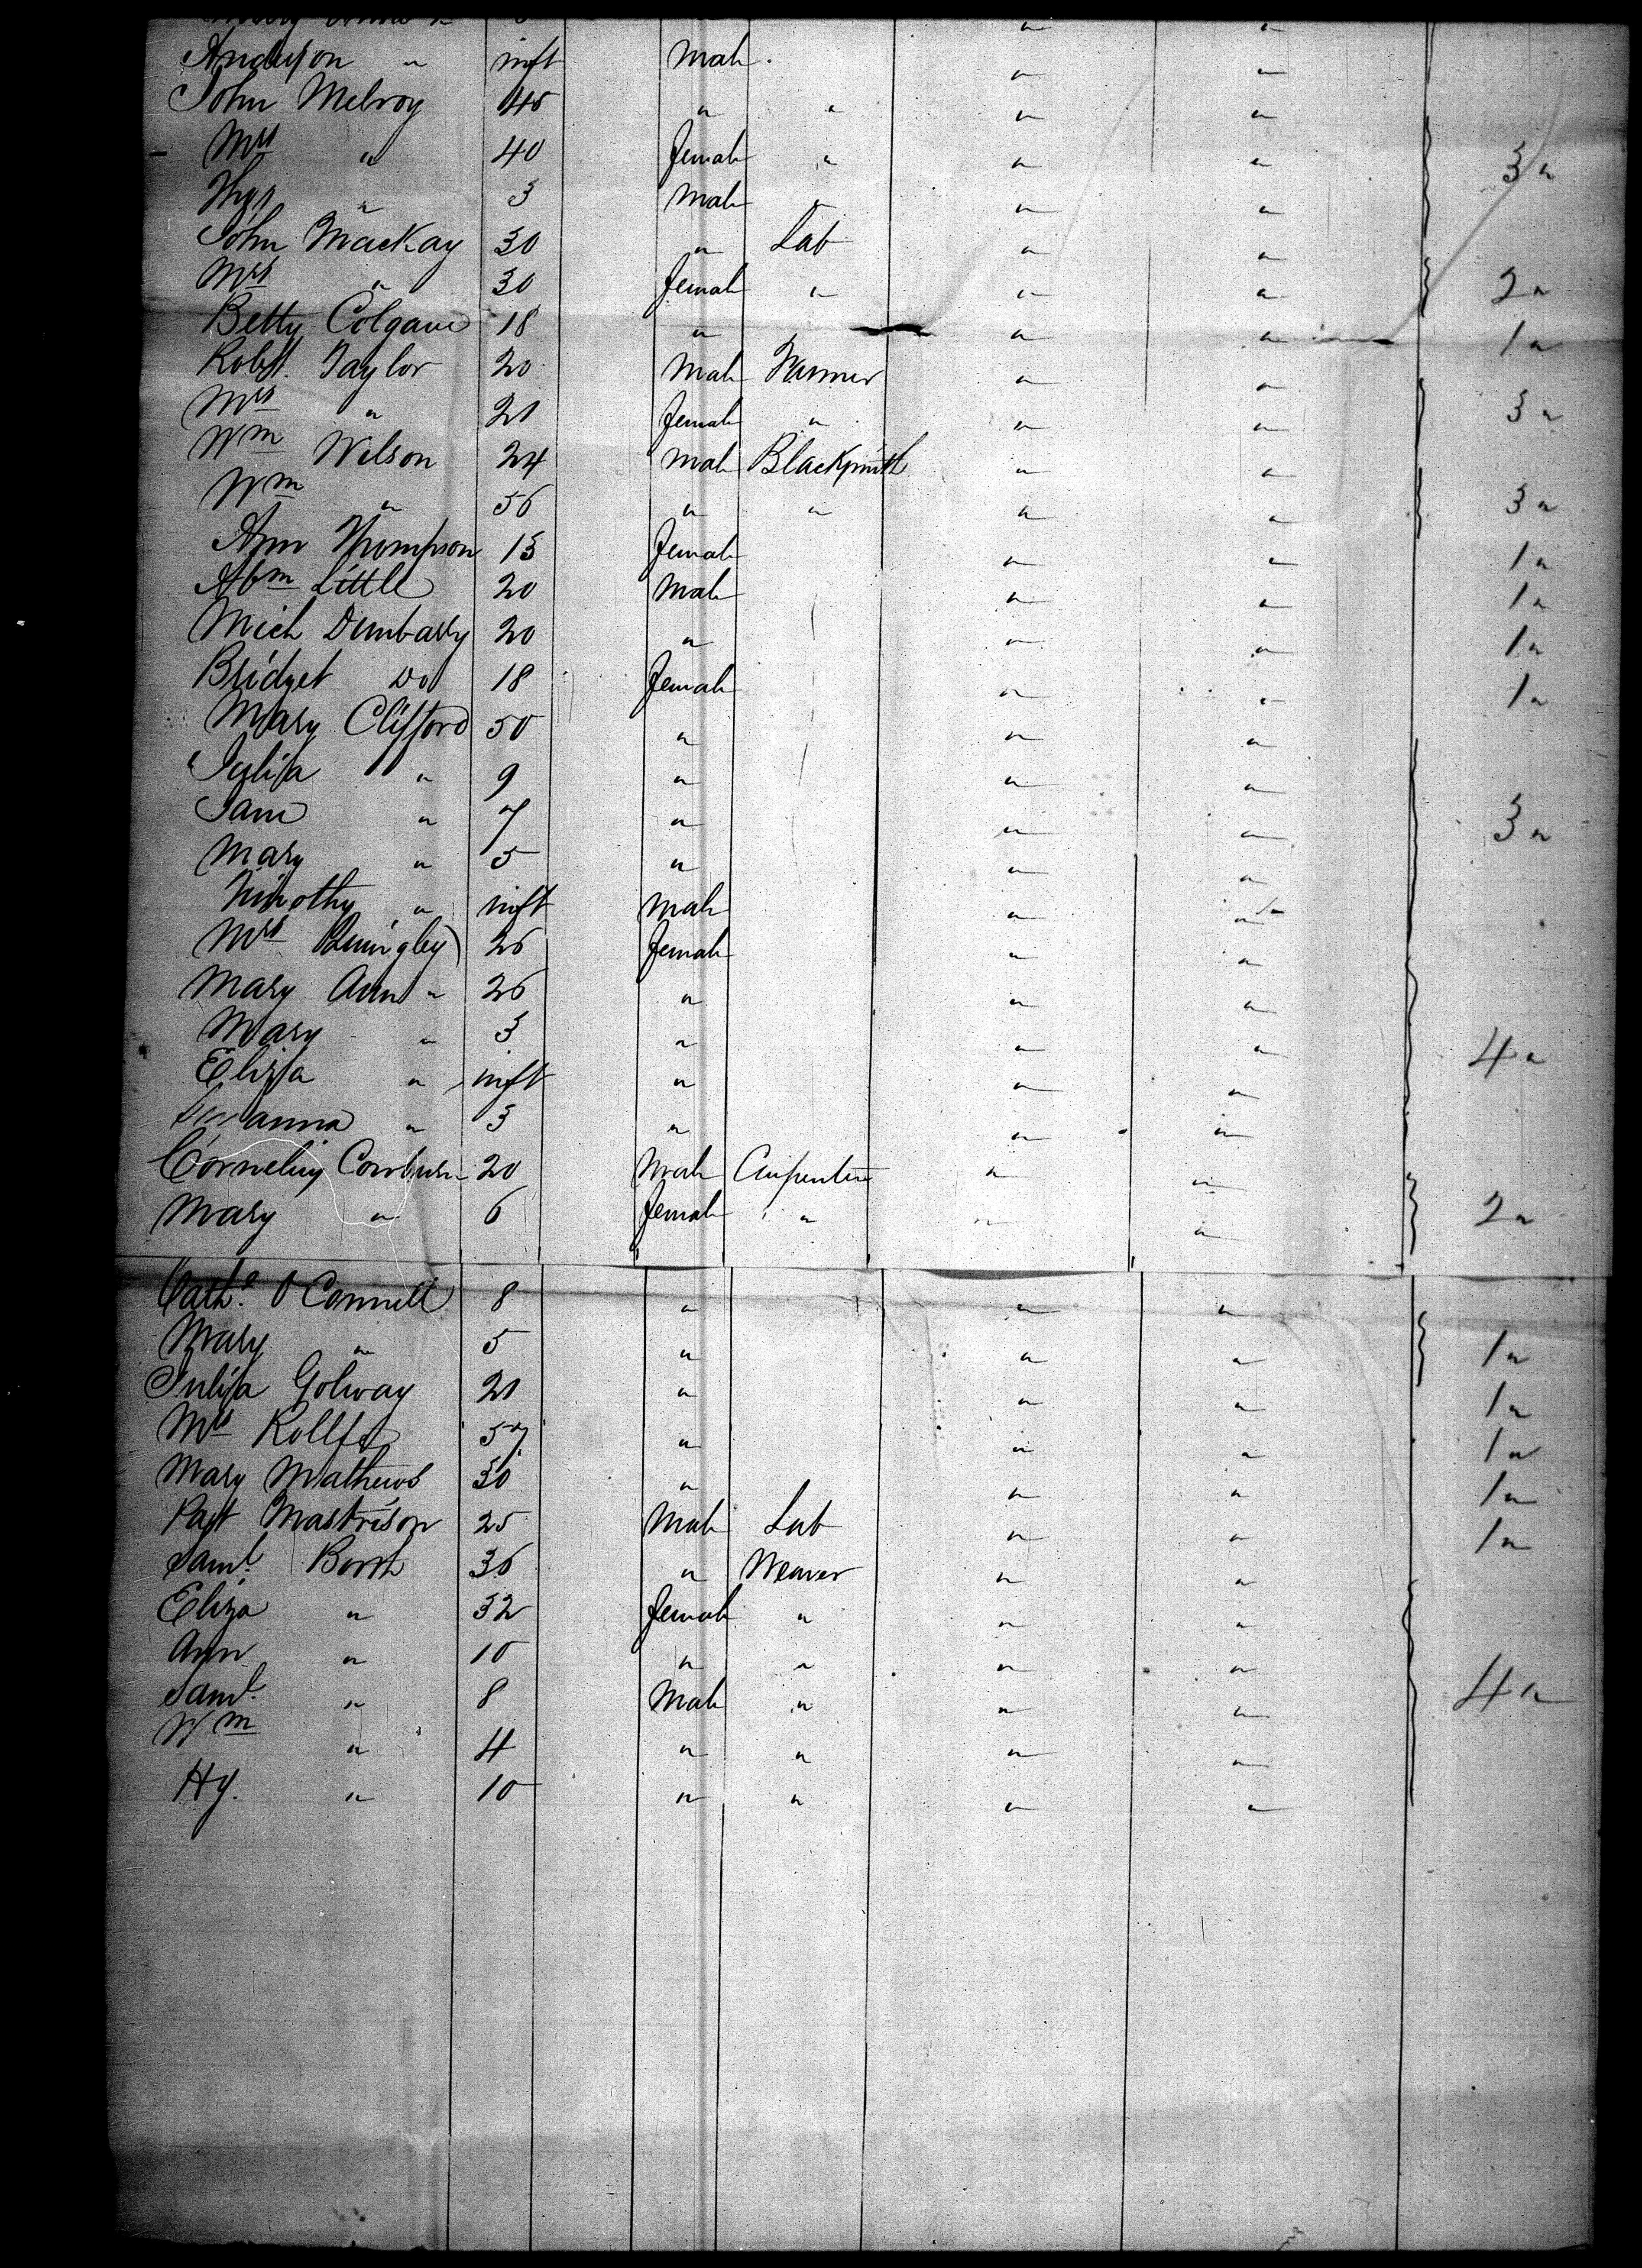 Anderson " inft Male " "
John Melroy 45 " " " "
Mrs " 40 Female " " " 3 "
" 3 Male " " "
John MacKay 30 " Lab " "
Mrs " 30 Female " " " 2 "
Betty Colgan 18 " " " 1 "
Robt. Taylor 20 Male Farmer " "
Mrs " 21 Female " " " 3 "
Wm Wilson 24 Male Blacksmith " "
Wm " 56 " " " " 3 "
Ann Thompson 13 Female " " 1 "
Abm Little 20 Male " " 1 "
Mich Dunbarry 20 " " " 1 "
Bridget Do 18 Female " " 1 "
Mary Clifford 50 " " "
Julia " 9 " " "
Jane " 7 " " " 3 "
Mary " 5 " " "
Timothy " inft Male " "
Mrs 26 Female " "
Mary Ann " 26 " " "
Mary " 3 " " " 4 "
Eliza " inft " " "
Susanna " 3 " " "
Cornelius 20 Male Carpenter " "
Mary " 6 Female " " " 2 "
Cathe. O Connell 8 " " "
Mary " 5 " " " 1 "
Julia Golway 21 " " " 1 "
Mrs 57 " " " 1 "
Mary Mathews 30 " " " 1 "
Pat Mastrison 25 Male Lab " " 1 "
Saml. Booth 36 " Weaver " "
Eliza " 32 Female " " "
Ann " 10 " " " "
Saml. " 8 Male " " " 4 "
Wm " 4 " " " "
Hy. " 10 " " " "